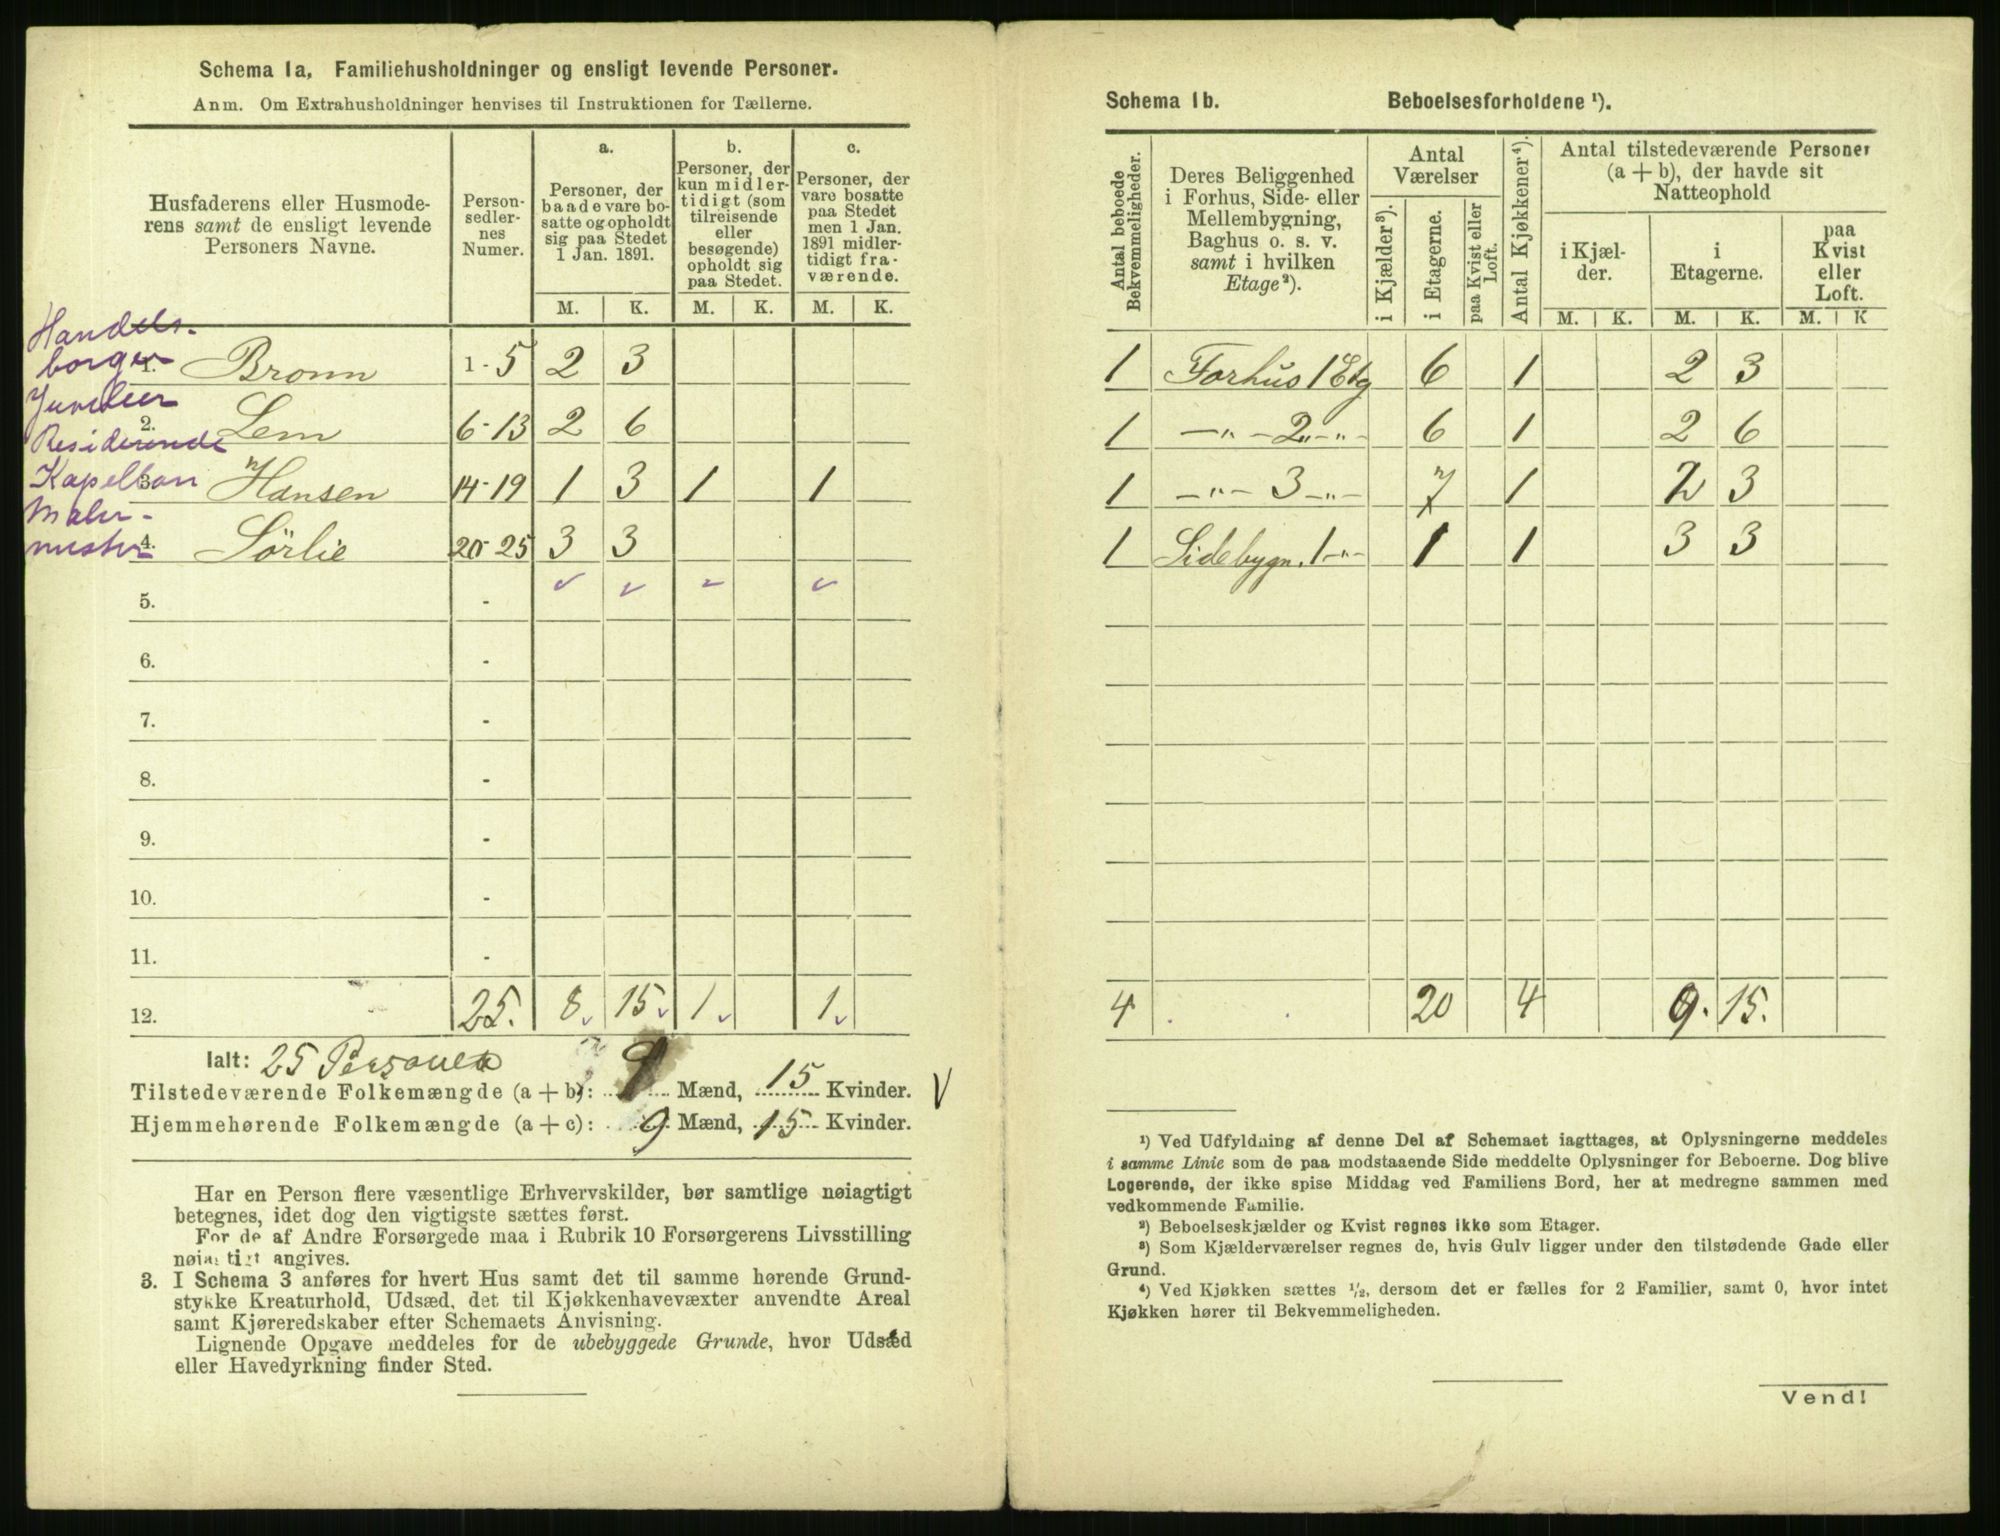 Schema 1a, Familiehusholdninger og ensligt levende Personer.
Anm. Om Extrahusholdninger henvises til Instruktionen for Tællerne.
Husfaderens eller Husmode-
rens samt de ensligt levende
Personers Navne.
Person-
sedler-
nes
Numer.
a.
Personer, der
baade vare bo-
satte og opholdt
sig paa Stedet
1 Jan. 1891.
b.
Personer, der
kun midler-
tidigt (som
tilreisende
eller
besøgende)
opholdt sig
paa Stedet.
c.
Personer, der
vare bosatte
paa Stedet
men 1 Jan.
1891 midler-
tidigt fra-
værende.
M. K. M. K. M. K.
Handels-
borger
1. Bronn 1-5 2 3
Juveleer
2. Lem 6-13 2 6
Residerende
Kapellan
3. Hansen 14-19 1 3 1 1
Maler-
mester
4. Sörlie 20-25 3 3
5. -
6. -
7. -
8. -
9. -
10. -
11. -
12. 25. 8. 15. 1. 1.
Ialt: 25 Personer
Tilstedeværende Folkemængde (a + b): 9 Mænd, 15 Kvinder.
Hjemmehørende Folkemængde (a + c): 9 Mænd, 15 Kvinder.
Har en Person flere væsentlige Erhvervskilder, bør samtlige nøiagtigt
betegnes, idet dog den vigtigste sættes først.
For de af Andre Forsørgede maa i Rubrik 10 Forsørgerens Livsstilling
nøiagtigt angives.
3. I Schema 3 anføres for hvert Hus samt det til samme hørende Grund-
stykke Kreaturhold, Udsæd, det til Kjøkkenhavevæxter anvendte Areal
samt Kjøreredskaber efter Schemaets Anvisning.
Lignende Opgave meddeles for de ubebyggede Grunde, hvor Udsæd
eller Havedyrkning finder Sted.
Schema 1b. Beboelsesforholdene ¹).
Antal beboede
Bekvemmeligheder.
Deres Beliggenhed
i Forhus, Side- eller
Mellembygning,
Baghus o. s. v.
samt i hvilken
Etage²).
Antal
Værelser
i Kjælder³).
i Etagerne.
paa Kvist eller
Loft.
Antal Kjøkkener⁴).
Antal tilstedeværende Personer
(a + b), der havde sit
Natteophold
i Kjæl-
der.
i
Etagerne.
paa
Kvist
eller
Loft.
M. K. M. K. M. K
1 Forhus 1 Etg 6 1 2 3
1 -„- 2 -„- 6 1 2 6
1 -„- 3 -„- 7 1 2 3
1 Sidebygn. 1 -„- 1 1 3 3
4 20 4 9. 15.
¹) Ved Udfyldning af denne Del af Schemaet iagttages, at Oplysningerne meddeles
i samme Linie som de paa modstaaende Side meddelte Oplysninger for Beboerne. Dog blive
Logerende, der ikke spise Middag ved Familiens Bord, her at medregne sammen med
vedkommende Familie.
²) Beboelseskjælder og Kvist regnes ikke som Etager.
³) Som Kjælderværelser regnes de, hvis Gulv ligger under den tilstødende Gade eller
Grund.
⁴) Ved Kjøkken sættes ½, dersom det er fælles for 2 Familier, samt 0, hvor intet
Kjøkken hører til Bekvemmeligheden.
Vend!